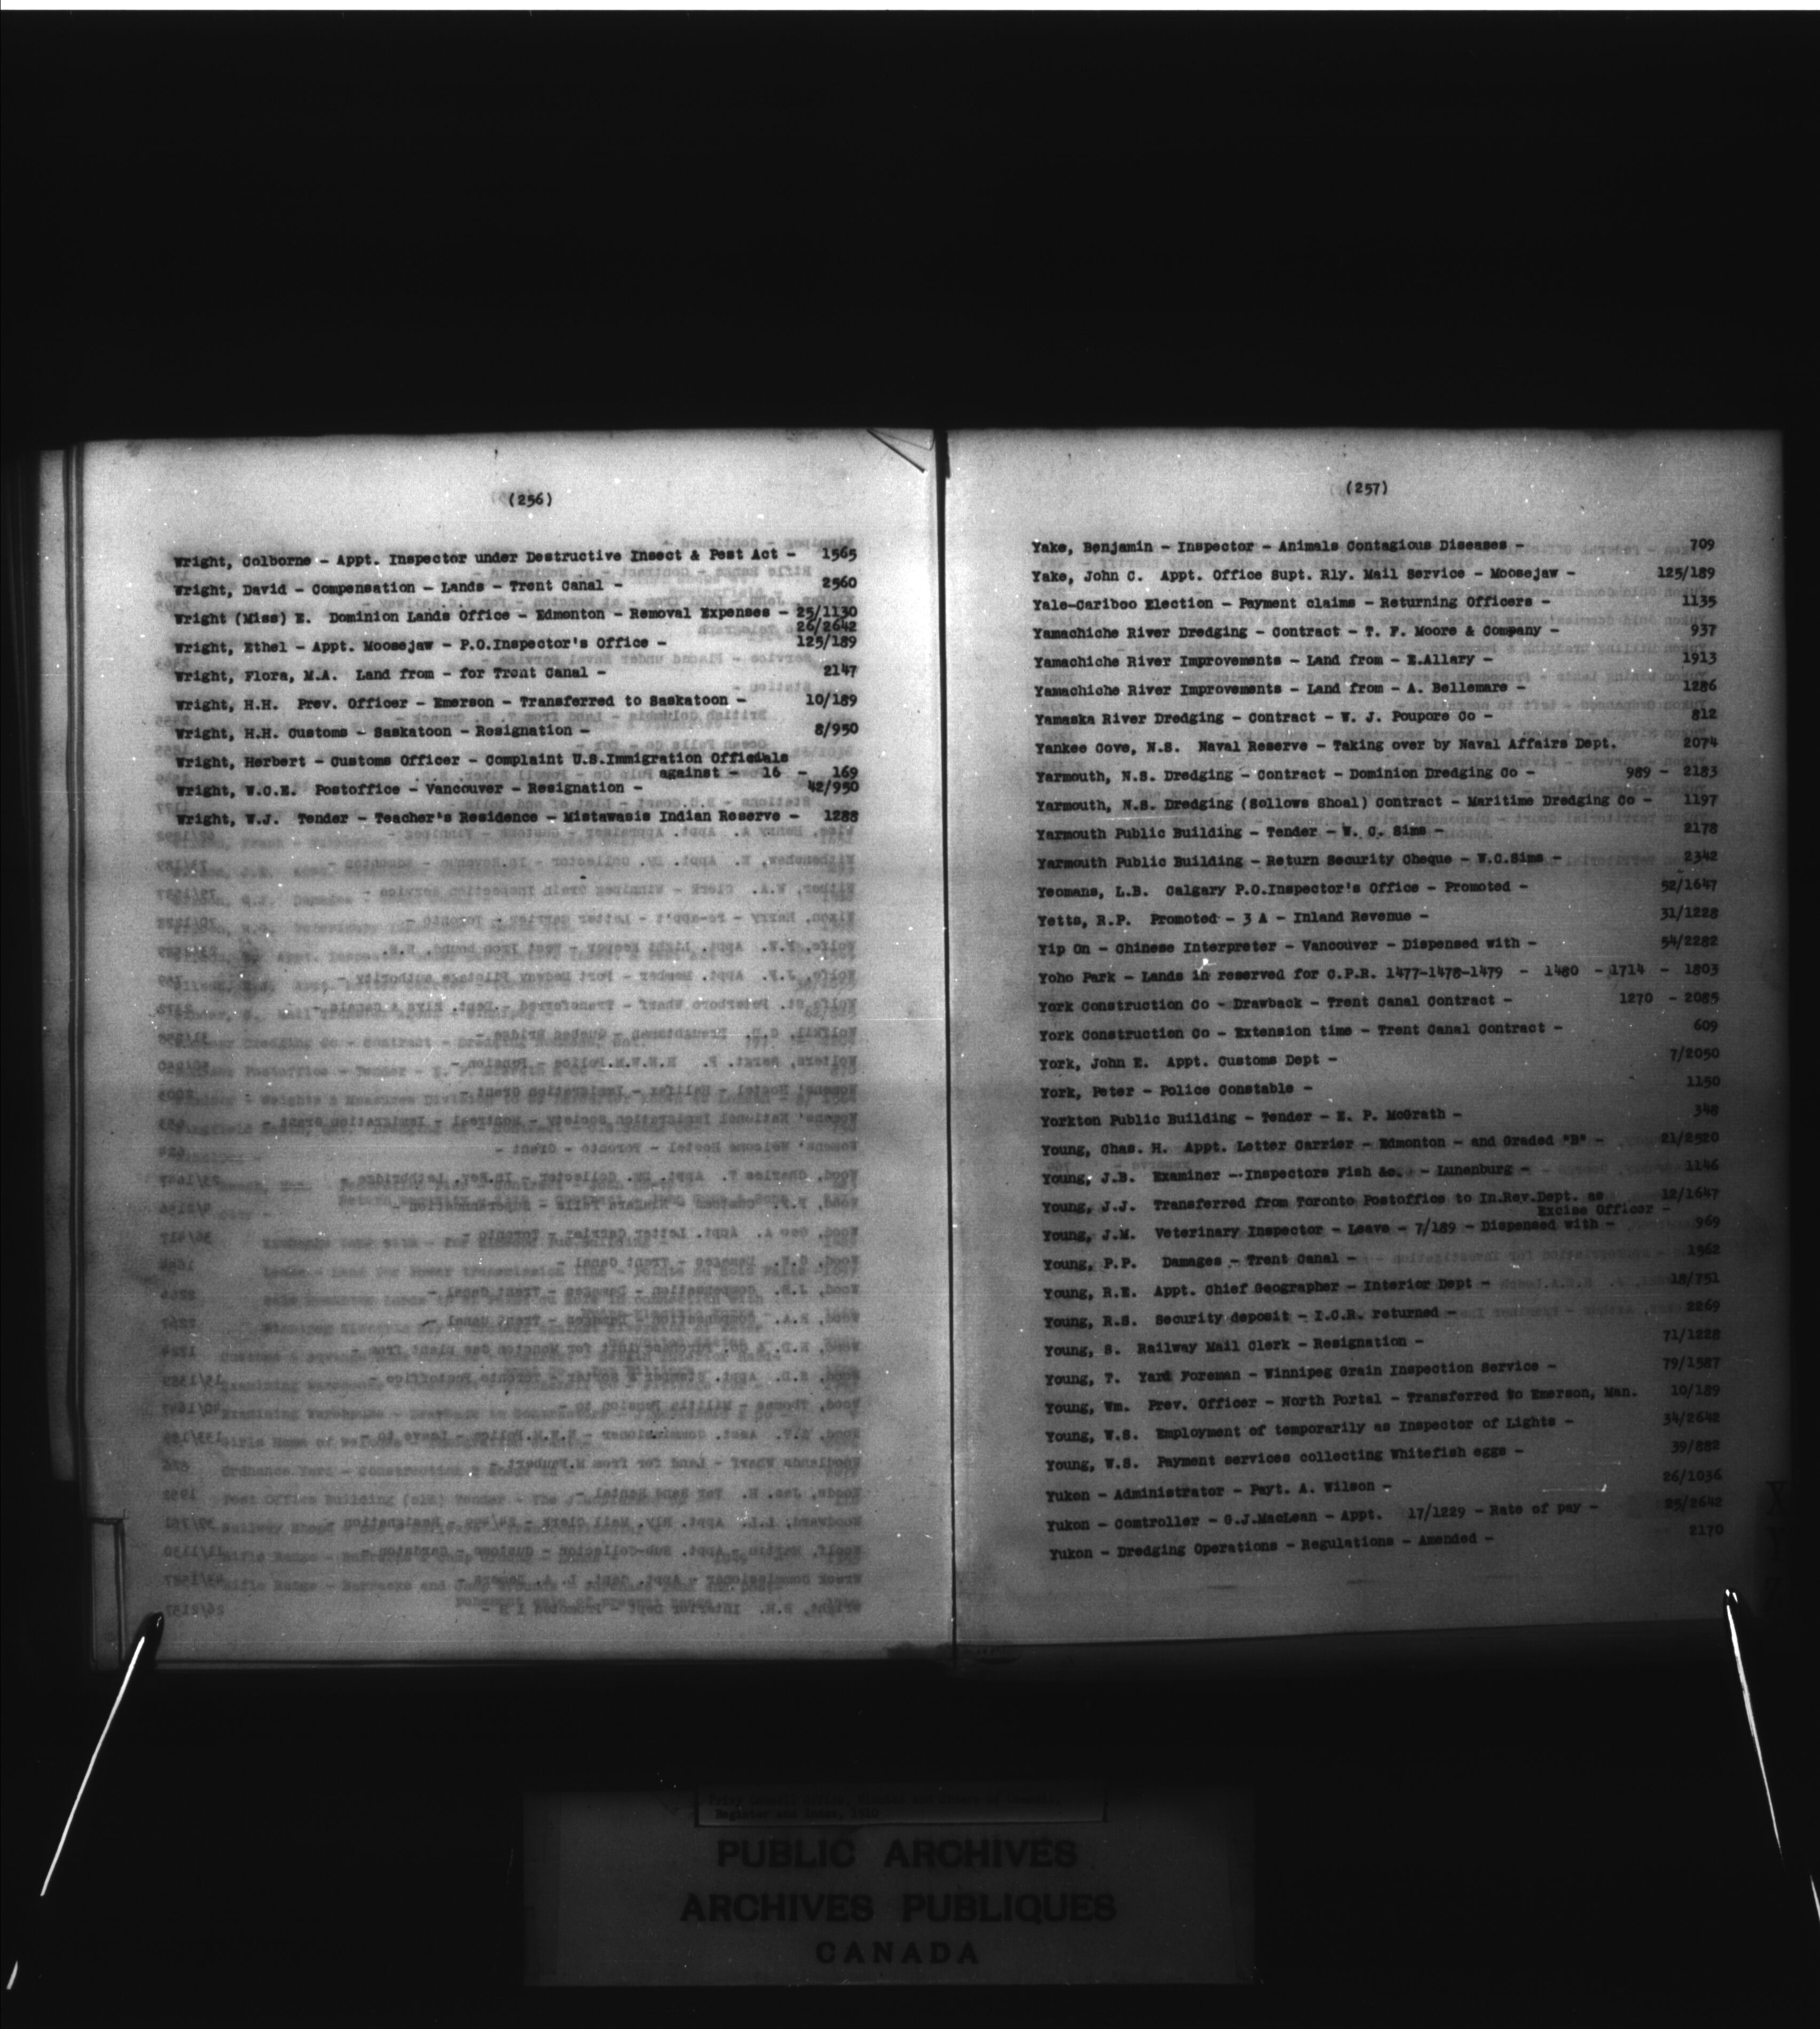 (256)
Wright, Colborne - Appt. Inspector under Destructive Insect & Pest Act - 1565
Wright, David - Compensation - Lands - Trent Canal - 2560
Wright (Miss) E. Dominion Lands Office - Edmonton - Removal Expenses - 25/1130
26/2642
Wright, Ethel - Appt. Moosejaw - P.O.Inspector's Office - 125/189
Wright, Flora, M.A. Land from - for Trent Canal - 2147
Wright, H.H. Prev. Officer - Emerson - Transferred to Saskatoon - 10/189
Wright, H.H. Customs - Saskatoon - Resignation - 8/950
Wright, Herbert - Customs Officer - Complaint U.S.Immigration Officials
against - 16 - 169
Wright, W.C.E. Postoffice - Vancouver - Resignation - 42/950
Wright, W.J. Tender - Teacher's Residence - Mistawasis Indian Reserve - 1288
(257)
Yake, Benjamin - Inspector - Animals Contagious Diseases - 709
Yake, John C. Appt. Office Supt. Rly. Mail Service - Moosejaw - 125/189
Yale-Cariboo Election - Payment claims - Returning Officers - 1135
Yamachiche River Dredging - Contract - T. F. Moore & Company - 937
Yamachiche River Improvements - Land from - E.Allary - 1913
Yamachiche River Improvements - Land from - A. Bellemare - 1286
Yamaska River Dredging - Contract - W. J. Poupore Co - 812
Yankee Cove, N.S. Naval Reserve - Taking over by Naval Affairs Dept. 2074
Yarmouth, N.S. Dredging - Contract - Dominion Dredging Co - 989 - 2183
Yarmouth, N.S. Dredging (Sollows Shoal) Contract - Maritime Dredging Co - 1197
Yarmouth Public Building - Tender - W. C. Sims - 2178
Yarmouth Public Building - Return Security Cheque - W.C.Sims - 2342
Yeomans, L.B. Calgary P.O.Inspector's Office - Promoted - 52/1647
Yetts, R.P. Promoted - 3 A - Inland Revenue - 31/1228
Yip On - Chinese Interpreter - Vancouver - Dispensed with - 54/2282
Yoho Park - Lands in reserved for C.P.R. 1477-1478-1479 - 1480 - 1714 - 1803
York Construction Co - Drawback - Trent Canal Contract - 1270 - 2085
York Construction Co - Extension time - Trent Canal Contract - 609
York, John E. Appt. Customs Dept - 7/2050
York, Peter - Police Constable - 1150
Yorkton Public Building - Tender - E. P. McGrath - 348
Young, Chas. H. Appt. Letter Carrier - Edmonton - and Graded "B" - 21/2520
Young, J.B. Examiner - Inspectors Fish &c. - Lunenburg - 1146
Young, J.J. Transferred from Toronto Postoffice to In.Rev.Dept. as 12/1647
Excise Officer -
Young, J.M. Veterinary Inspector - Leave - 7/189 - Dispensed with - 969
Young, P.P. Damages - Trent Canal - 1562
Young, R.E. Appt. Chief Geographer - Interior Dept - 18/751
Young, R.S. Security deposit - I.C.R. returned - 2269
Young, S. Railway Mail Clerk - Resignation - 71/1228
Young, T. Yard Foreman - Winnipeg Grain Inspection Service - 79/1587
Young, Wm. Prev. Officer - North Portal - Transferred to Emerson, Man. 10/189
Young, W.S. Employment of temporarily as Inspector of Lights - 34/2642
Young, W.S. Payment services collecting Whitefish eggs - 39/882
Yukon - Administrator - Payt. A. Wilson - 26/1036
Yukon - Comtroller - G.J.MacLean - Appt. 17/1229 - Rate of pay - 25/2642
Yukon - Dredging Operations - Regulations - Amended - 2170
Register and Index, 1910
PUBLIC ARCHIVES
ARCHIVES PUBLIQUES
CANADA